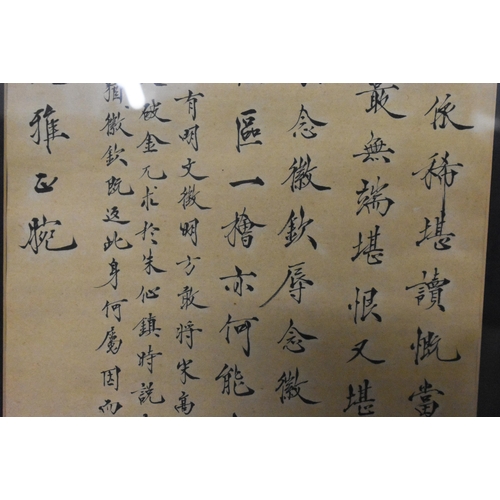 依稀堪讀慨當
最無端堪恨又堪
念徽欽辱念徽
區一檜亦何能
有明文徵明方敢將宋高
破金兀朮於朱仙鎮時説
徽欽既返此身何屬因而
雅正腕